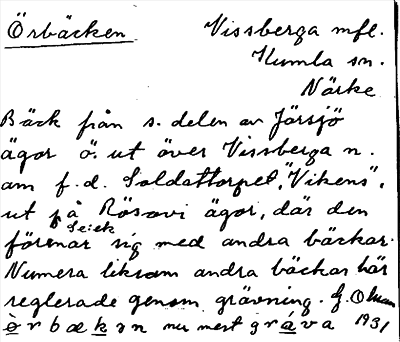 Örbäcken Vissberga mfl.
Kumla sn.
Närke
Bäck från s. delen av Jörsjö
ägor ö. ut över Vissberga n.
om f.d. Soldattorpet, "Vikens",
ut på Rösavi ägor, där den
förenar sig med andra bäckar.
Numera liksom andra bäckar här
reglerade genom grävning. G. Oman
nu mest gráva 1931